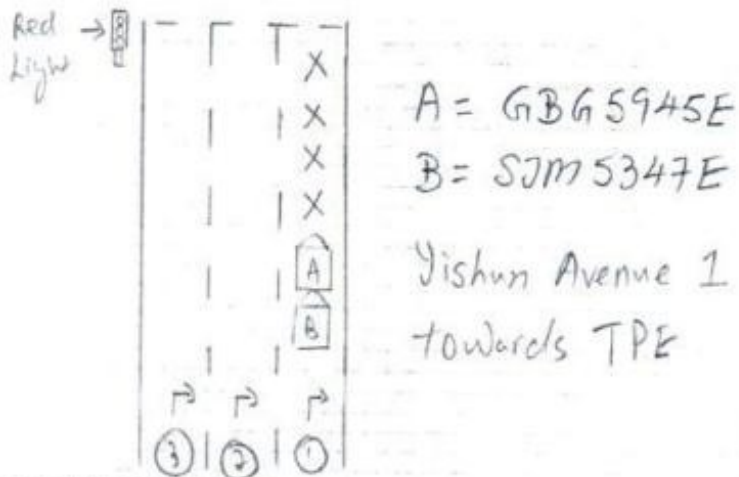 Red
Light
X
X
X
X
A
B
3 2 1
A = GBG5945E
B = SJM5347E
Yishun Avenue 1
towards TPE